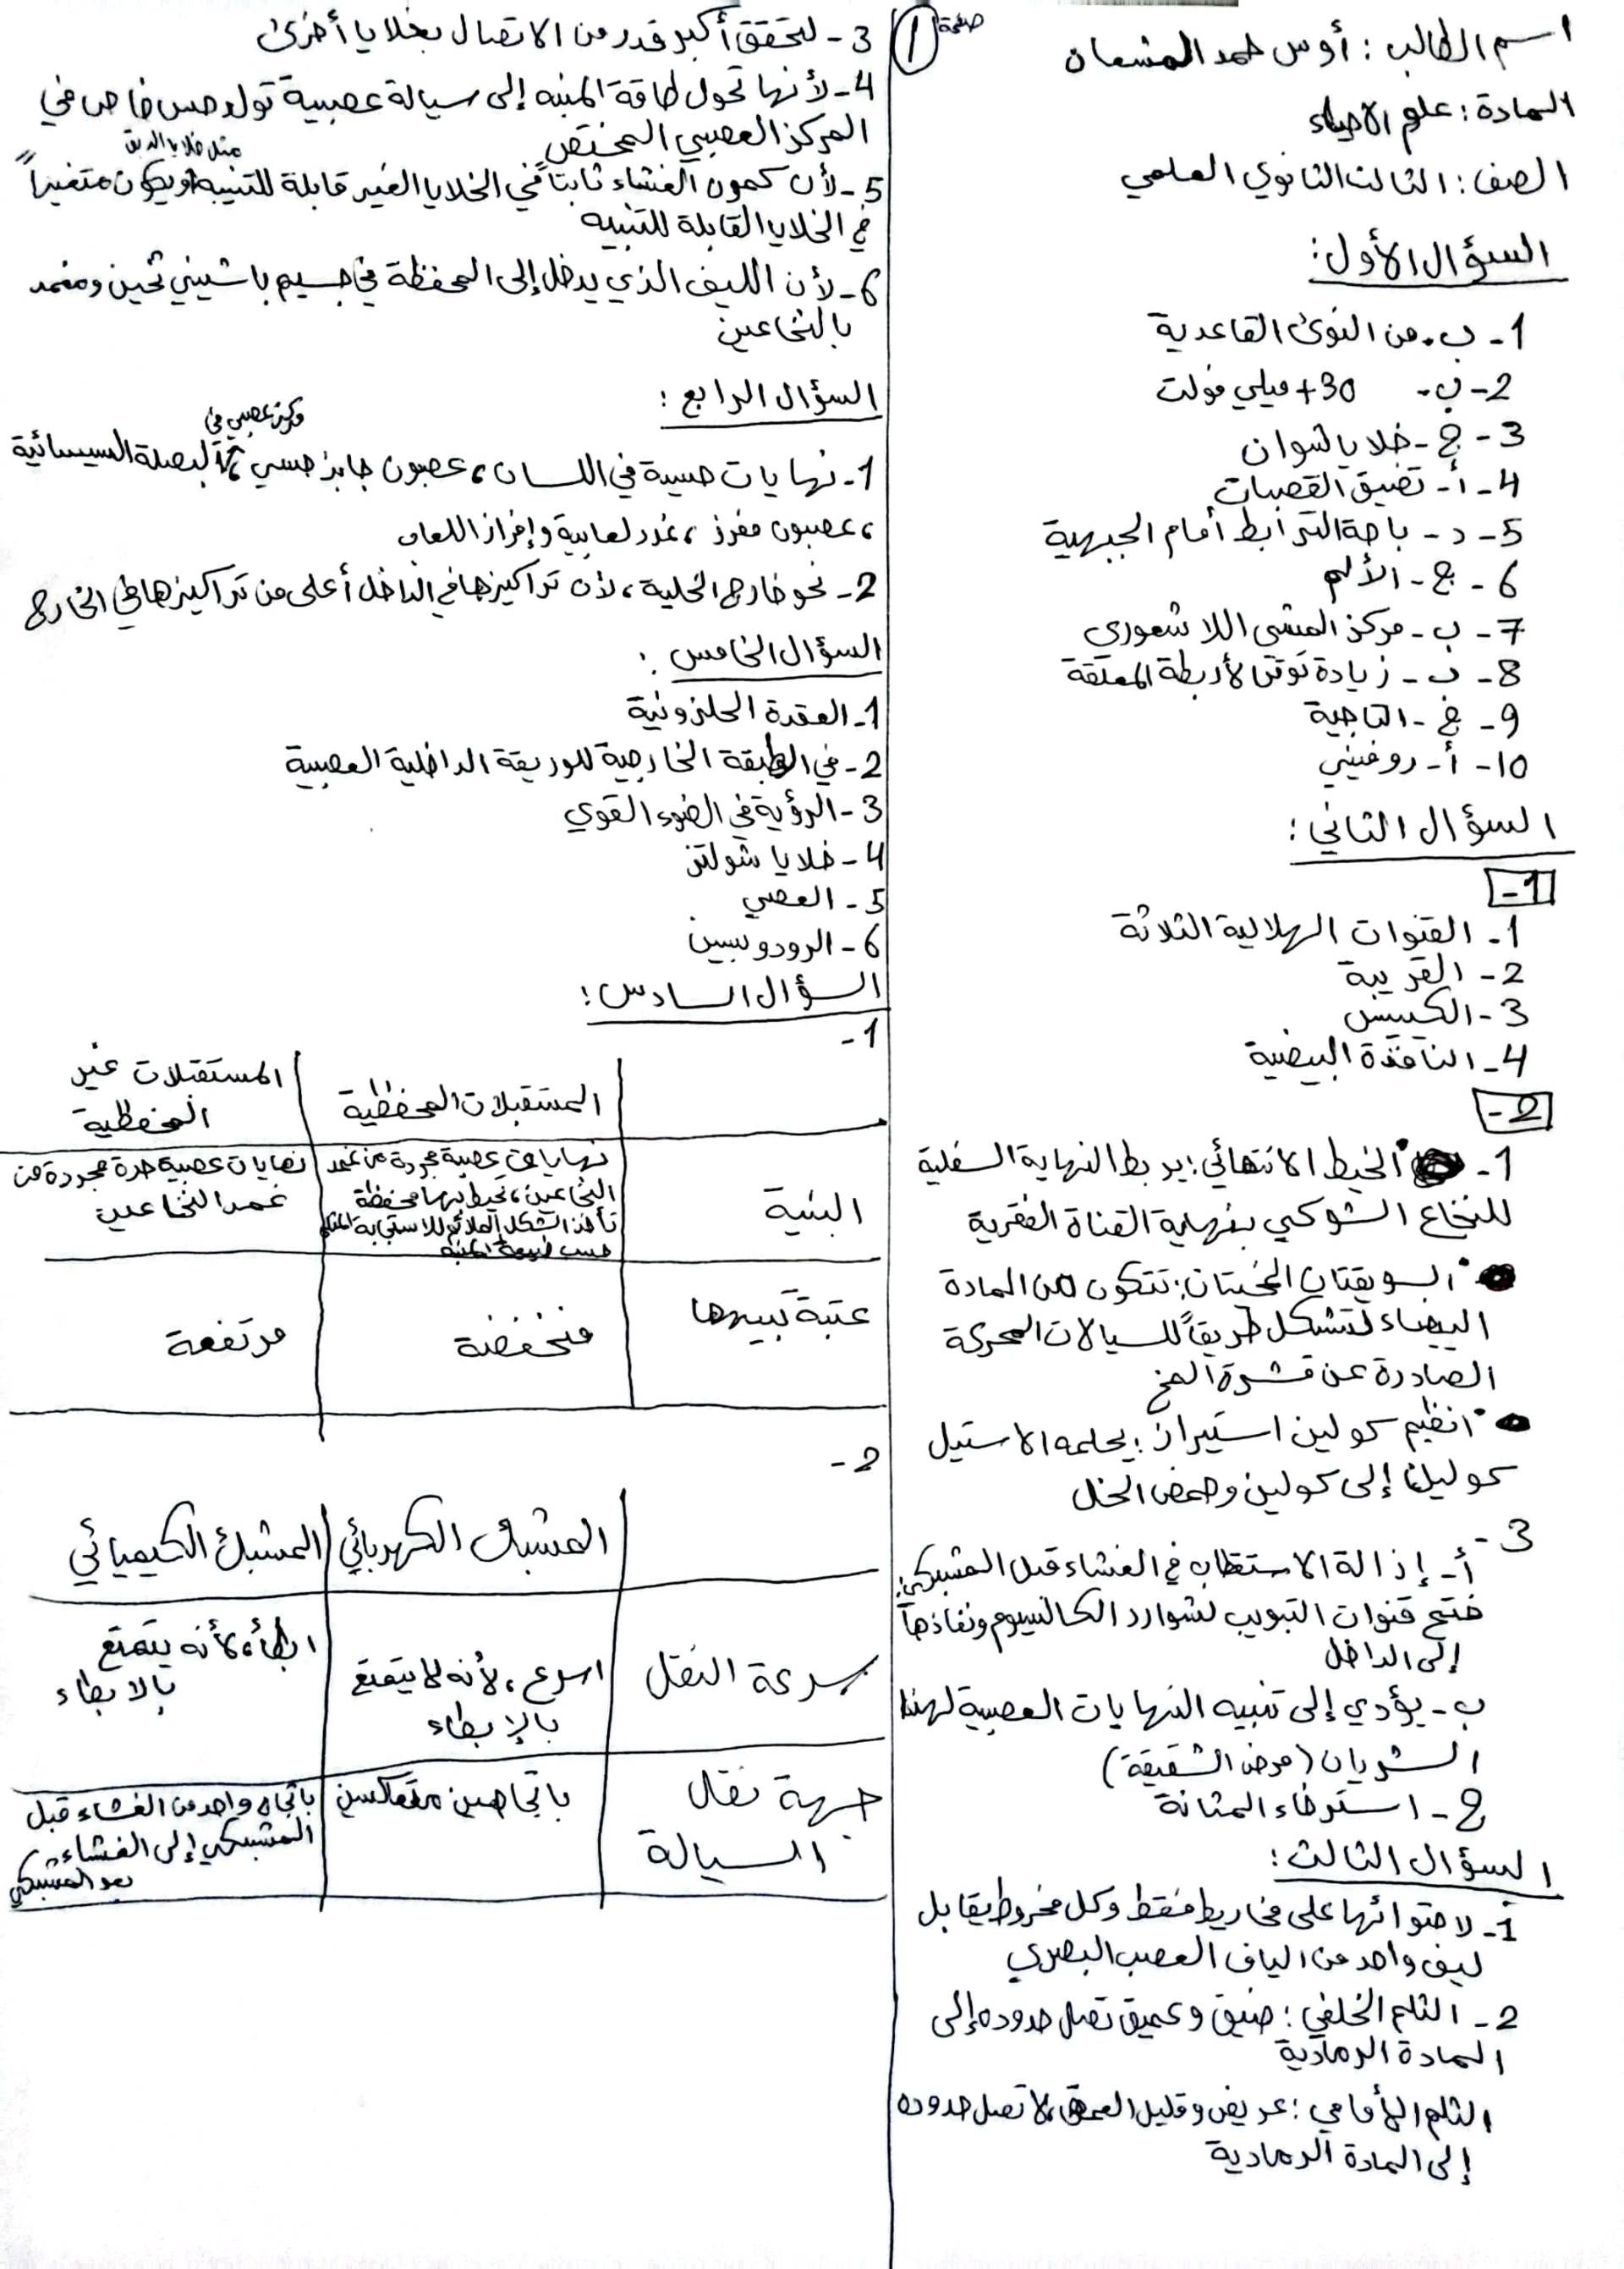 صفحة 1
اسم الطالب : أوس حمد المشعان
المادة : علم الاحياء
الصف : الثالث الثانوي العلمي
السؤال الأول :
1- ب. من النوى القاعدية
2- ب- +30 ميلي فولت
3- ج- خلايا شوان
4- أ- تضيق القصبات
5- د- باحة الترابط أمام الجبهية
6- ج- الألم
7- ب- مركز المشي اللاشعوري
8- ب- زيادة توتر الأربطة المعلقة
9- ج- التاجية
10- أ- روفيني
السؤال الثاني :
1-
1- القنوات الهلالية الثلاثة
2- القريبة
3- الكييس
4- النافذة البيضية
2-
1- الخيط الانتهائي : يربط النهاية السفلية
للنخاع الشوكي بنهاية القناة الفقرية
• السويقتان المخيتان : تتكون من المادة
البيضاء لتشكل طريقاً للسيالات المحركة
الصادرة عن قشرة المخ
• انظيم كولين استيراز : يحلمه الاستيل
كولين إلى كولين وحمض الخل
3-
أ- إزالة الاستقطاب في الغشاء قبل المشبكي :
فتح قنوات التبويب لشوارد الكالسيوم ونفاذها
إلى الداخل
ب- يؤدي إلى تنبيه النهايات العصبية لهذا
الشريان (مرض الشقيقة)
ج- استرخاء المثانة
السؤال الثالث :
1- لاحتوائها على مخاريط فقط وكل مخروط يقابل
ليف واحد من الياف العصب البصري
2- الثلم الخلفي : ضيق وعميق تصل حدوده إلى
المادة الرمادية
الثلم الأمامي : عريض وقليل العمق، لا تصل حدوده
إلى المادة الرمادية
3- لتحقق أكبر قدر من الاتصال بخلايا أخرى
4- لأنها تحول طاقة المنبه إلى سيالة عصبية تولد حس خاص في
المركز العصبي المختص
مثل خلايا الدبق
5- لأن كمون الغشاء ثابتاً في الخلايا الغير قابلة للتنبيه ويكون متغيراً
في الخلايا القابلة للتنبيه
6- لأن الليف الذي يدخل إلى المحفظة في جسيم باشيني ثخين ومغمد
بالنخاعين
السؤال الرابع :
مركز عصبي في
1- نهايات حسية في اللسان ، عصبون جابذ حسي ، البصلة السيسائية
، عصبون مفرز ، غدد لعابية وإفراز اللعاب
2- نحو خارج الخلية ، لأن تراكيزها في الداخل أعلى من تراكيزها في الخارج
السؤال الخامس :
1- العقدة الحلزونية
2- في الطبقة الخارجية للوريقة الداخلية العصبية
3- الرؤية في الضوء القوي
4- خلايا شولتز
5- العصي
6- الرودوبسين
السؤال السادس :
1-
المستقبلات المحفظية المستقبلات غير
المحفظية
البنية نهايات عصبية مجردة من غمد نهايات عصبية حرة مجردة من
النخاعين ، تحيط بها محفظة غمد النخاعين
تأخذ الشكل الملائم للاستجابة
حسب طبيعة المنبه
عتبة تنبيهها منخفضة مرتفعة
2-
المشبك الكهربائي المشبك الكيميائي
سرعة النقل اسرع ، لأنه لا يتمتع ابطأ، لأنه يتمتع
بالإبطاء بالابطاء
جهة نقل باتجاهين متعاكسين باتجاه واحد من الغشاء قبل
السيالة المشبكي إلى الغشاء
بعد المشبكي